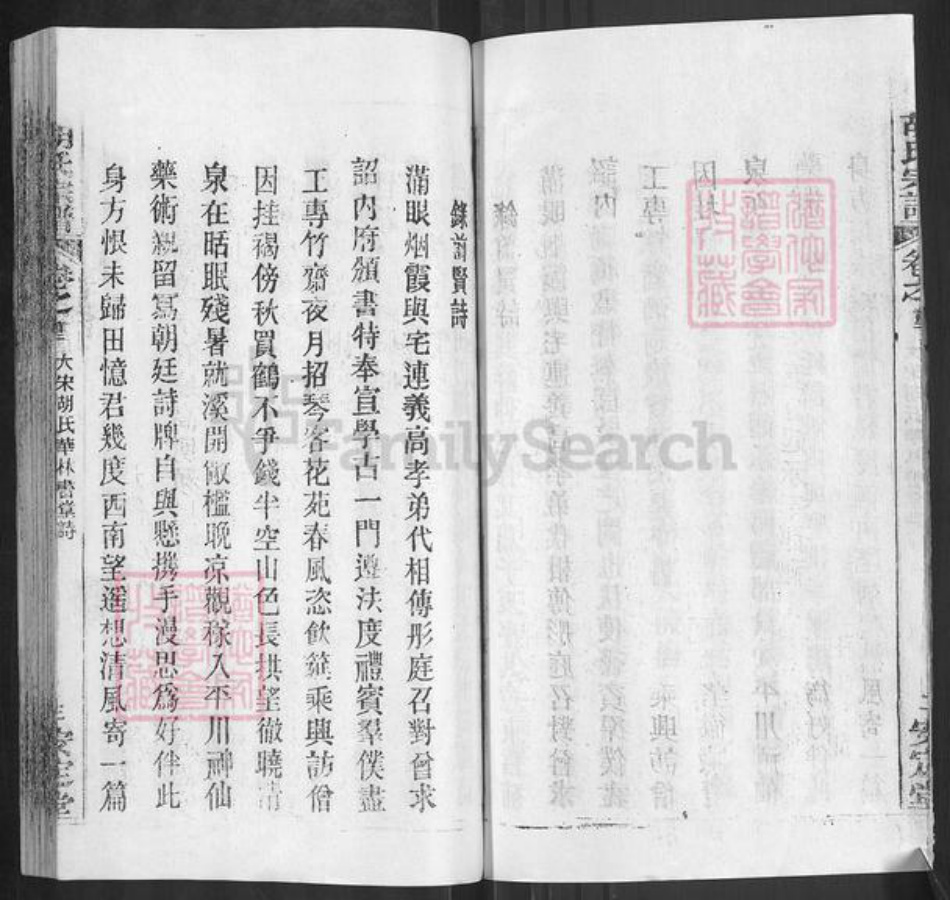 胡氏宗譜
卷之首
二
安定堂
錄前賢詩
滿眼烟霞與宅連義高孝弟代相傳彤庭召對曾求
詔內府頒書特奉宣學古一門遵法度禮賓羣僕盡
工專竹齋夜月招琴客花苑春風恣飲筵乘興訪僧
因挂褐傍秋買鶴不爭錢半空山色長拱望徹曉清
泉在聒眠殘暑就溪開敞檻晚凉觀稼入平川神仙
藥術親留寫朝廷詩牌自與懸攜手漫思爲好伴此
身方惧未歸田憶君幾度西南望遥想清風寄一篇
胡氏宗譜
卷之首
大宋胡氏華林書堂詩
三
安定堂
FamilySearch